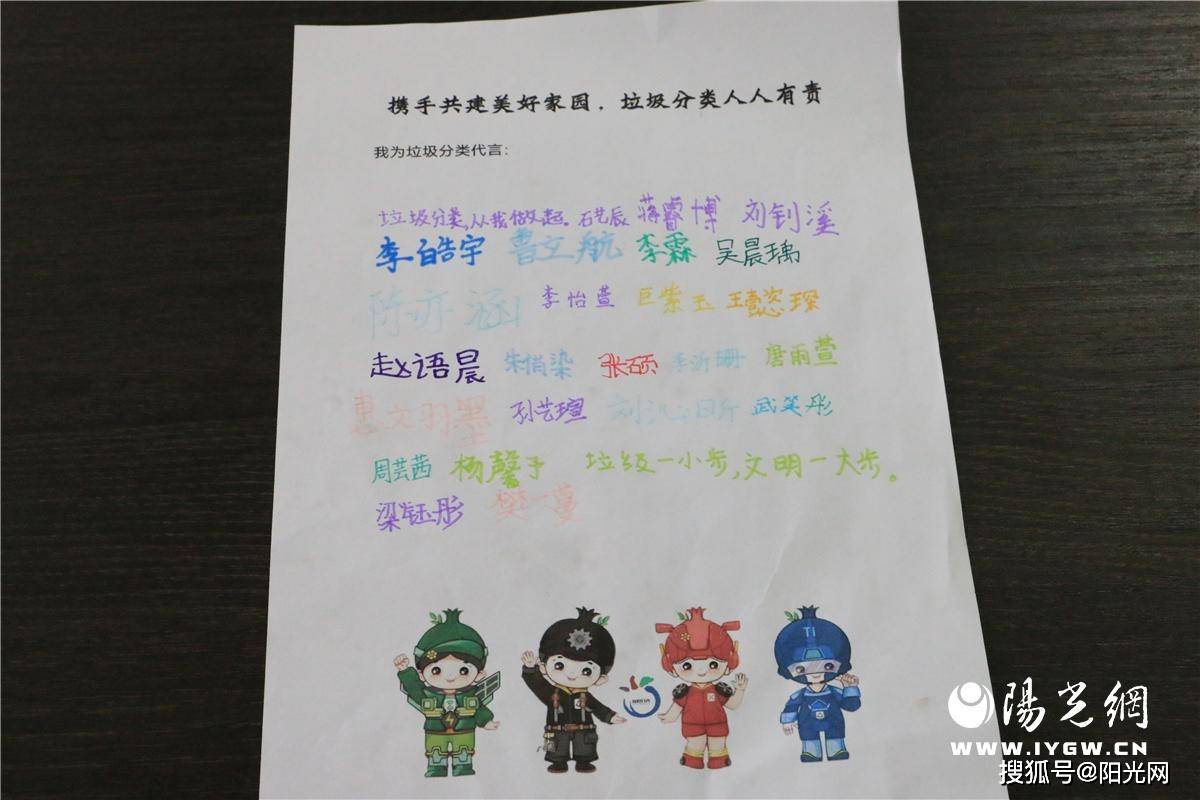 携手共建美好家园．垃圾分类人人有责
我为垃圾分类代言:
垃圾分类,从我做起. 石艺辰 蒋睿博 刘钊溪
李皓宇 曹立航 李霖 吴晨瑀
陈亦涵 李怡萱 巨紫玉 王懿琛
赵语晨 朱俏染 张硕 李沂珊 唐雨萱
惠文羽墨 孙艺瑄 刘沁昕 武笑彤
周芸茜 杨馨予 垃圾一小步,文明一大步。
梁钰彤 樊一蔓
TI
陽光網
WWW.IYGW.CN
搜狐号@阳光网